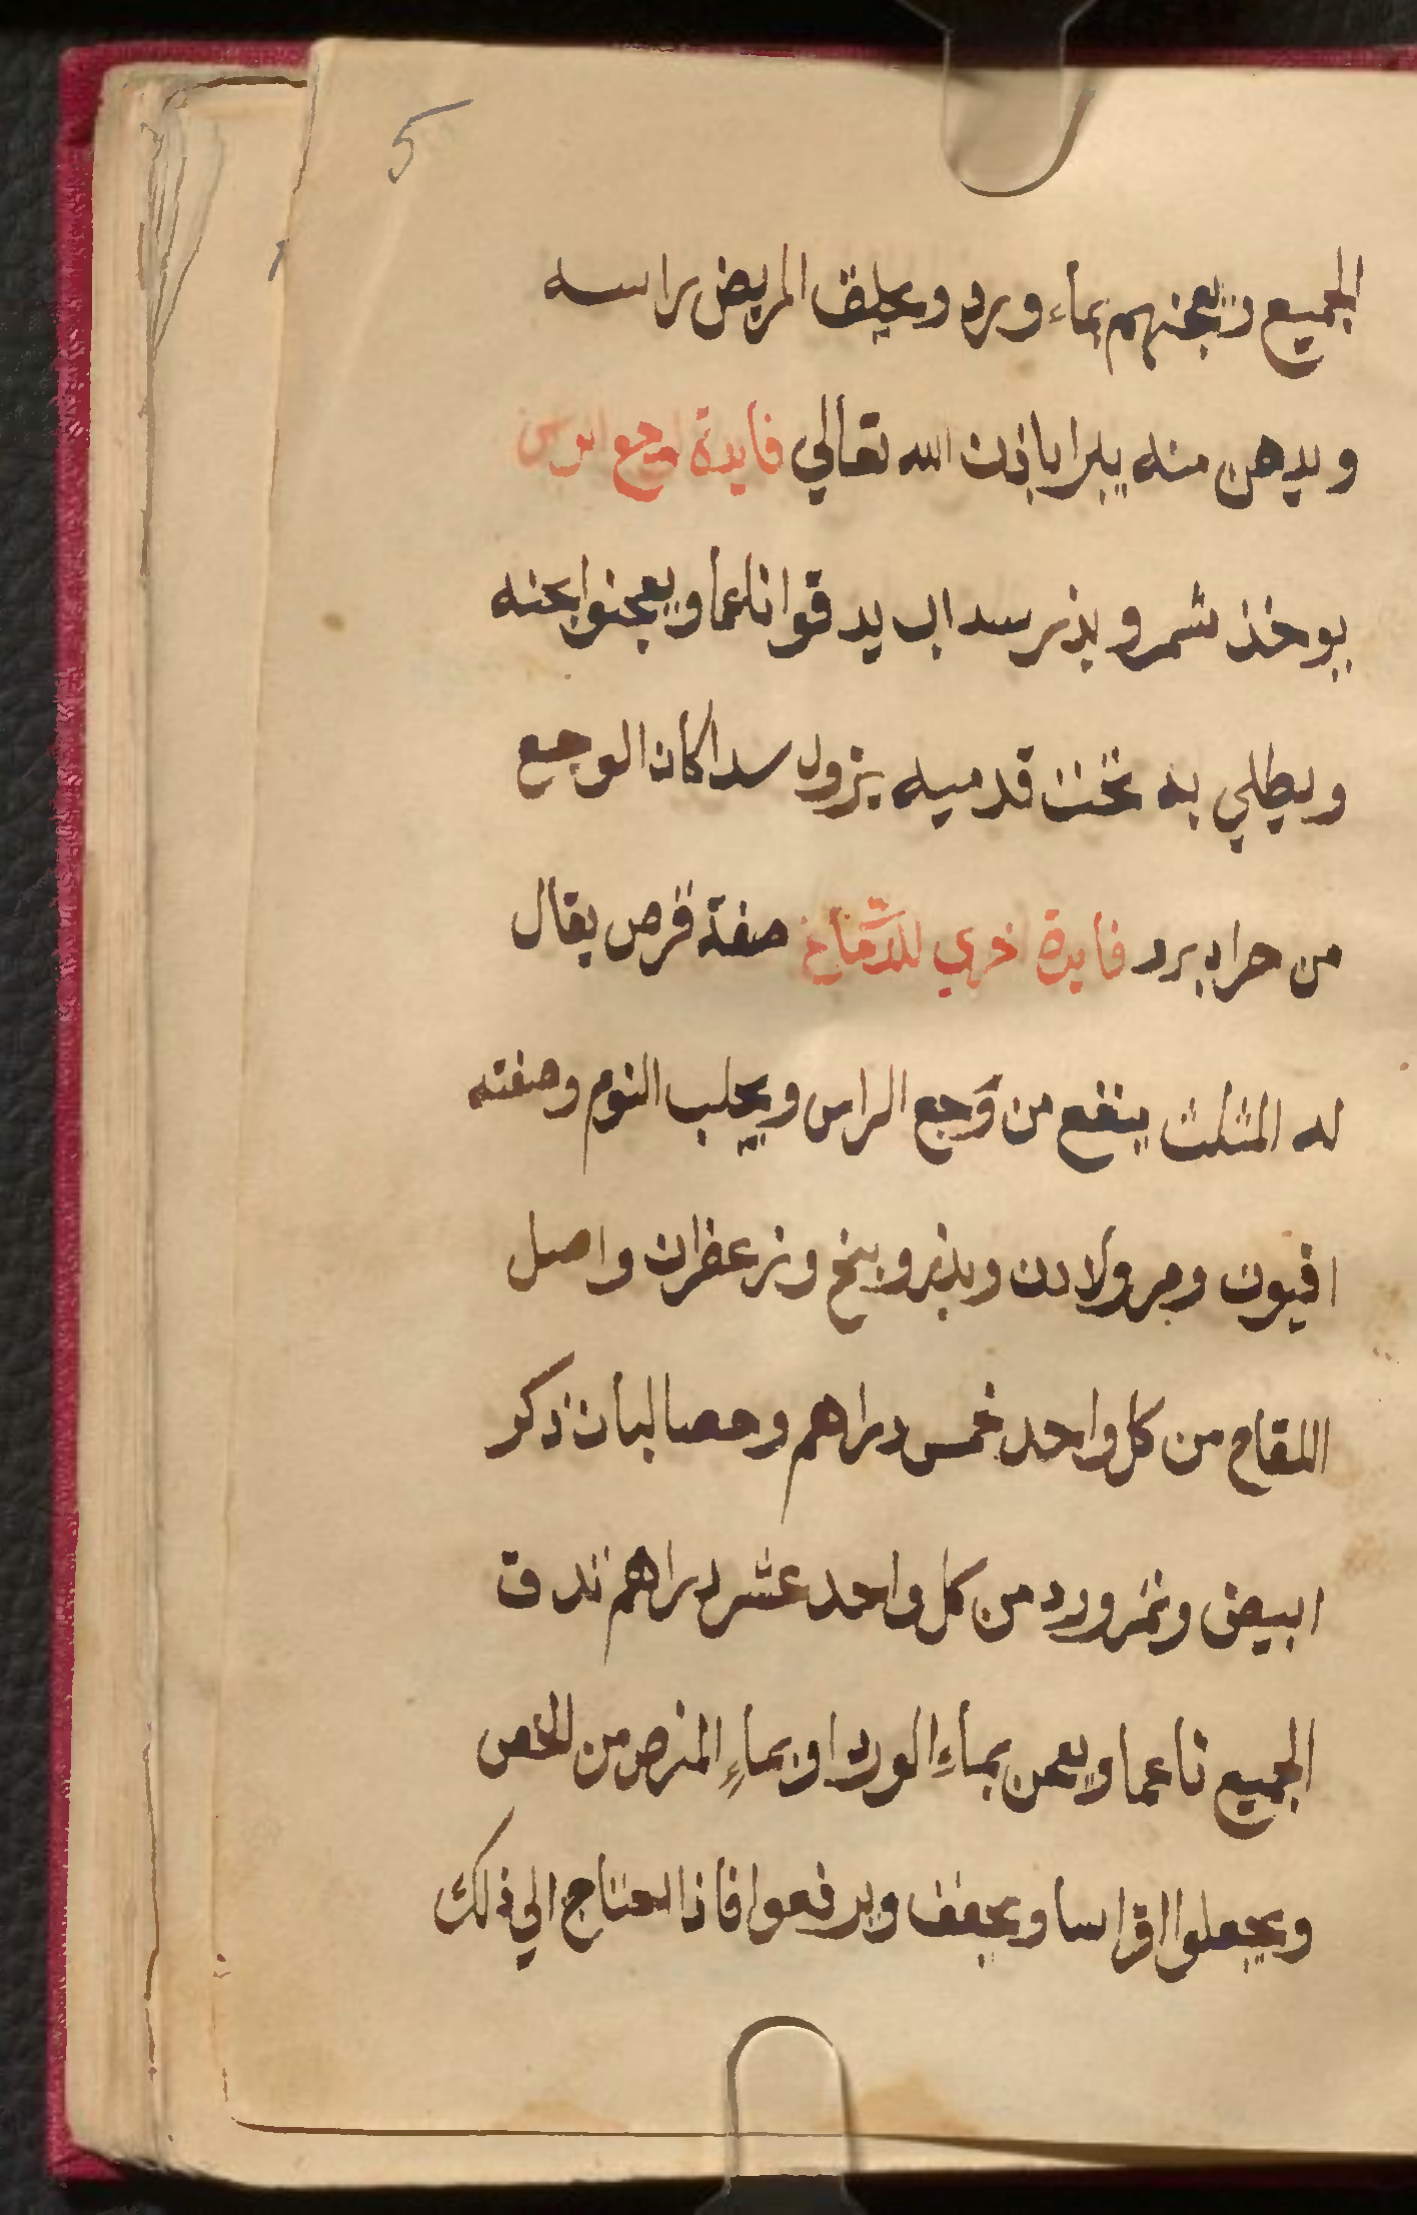 5
الجميع ويعجنهم بماء ورد ويحلق المريض راسه
ويدهن منه يبرا باذن الله تعالي فايدة لوجع الراس
يوخذ شمر وبذر سداب يدقوا ناعما ويعجنوا بحنه
ويطلي به تحت قدميه يزول سدا كان الوجع
من حر او برد فايدة اخري للدماغ صفة قرص يقال
له المثلث ينفع من وجع الراس ويجلب النوم وصفته
افيون ومر ولادن وبذر وبنج وزعفران واصل
اللقاح من كل واحد خمس دراهم وحصا لبان ذكر
ابيض وثمر ورد من كل واحد عشر دراهم تدق
الجميع ناعما ويعجن بماء الورد او بماء من الخص
ويجعلوا اقراسا ويجفف ويرفعوا فاذا احتاج الي ذلك